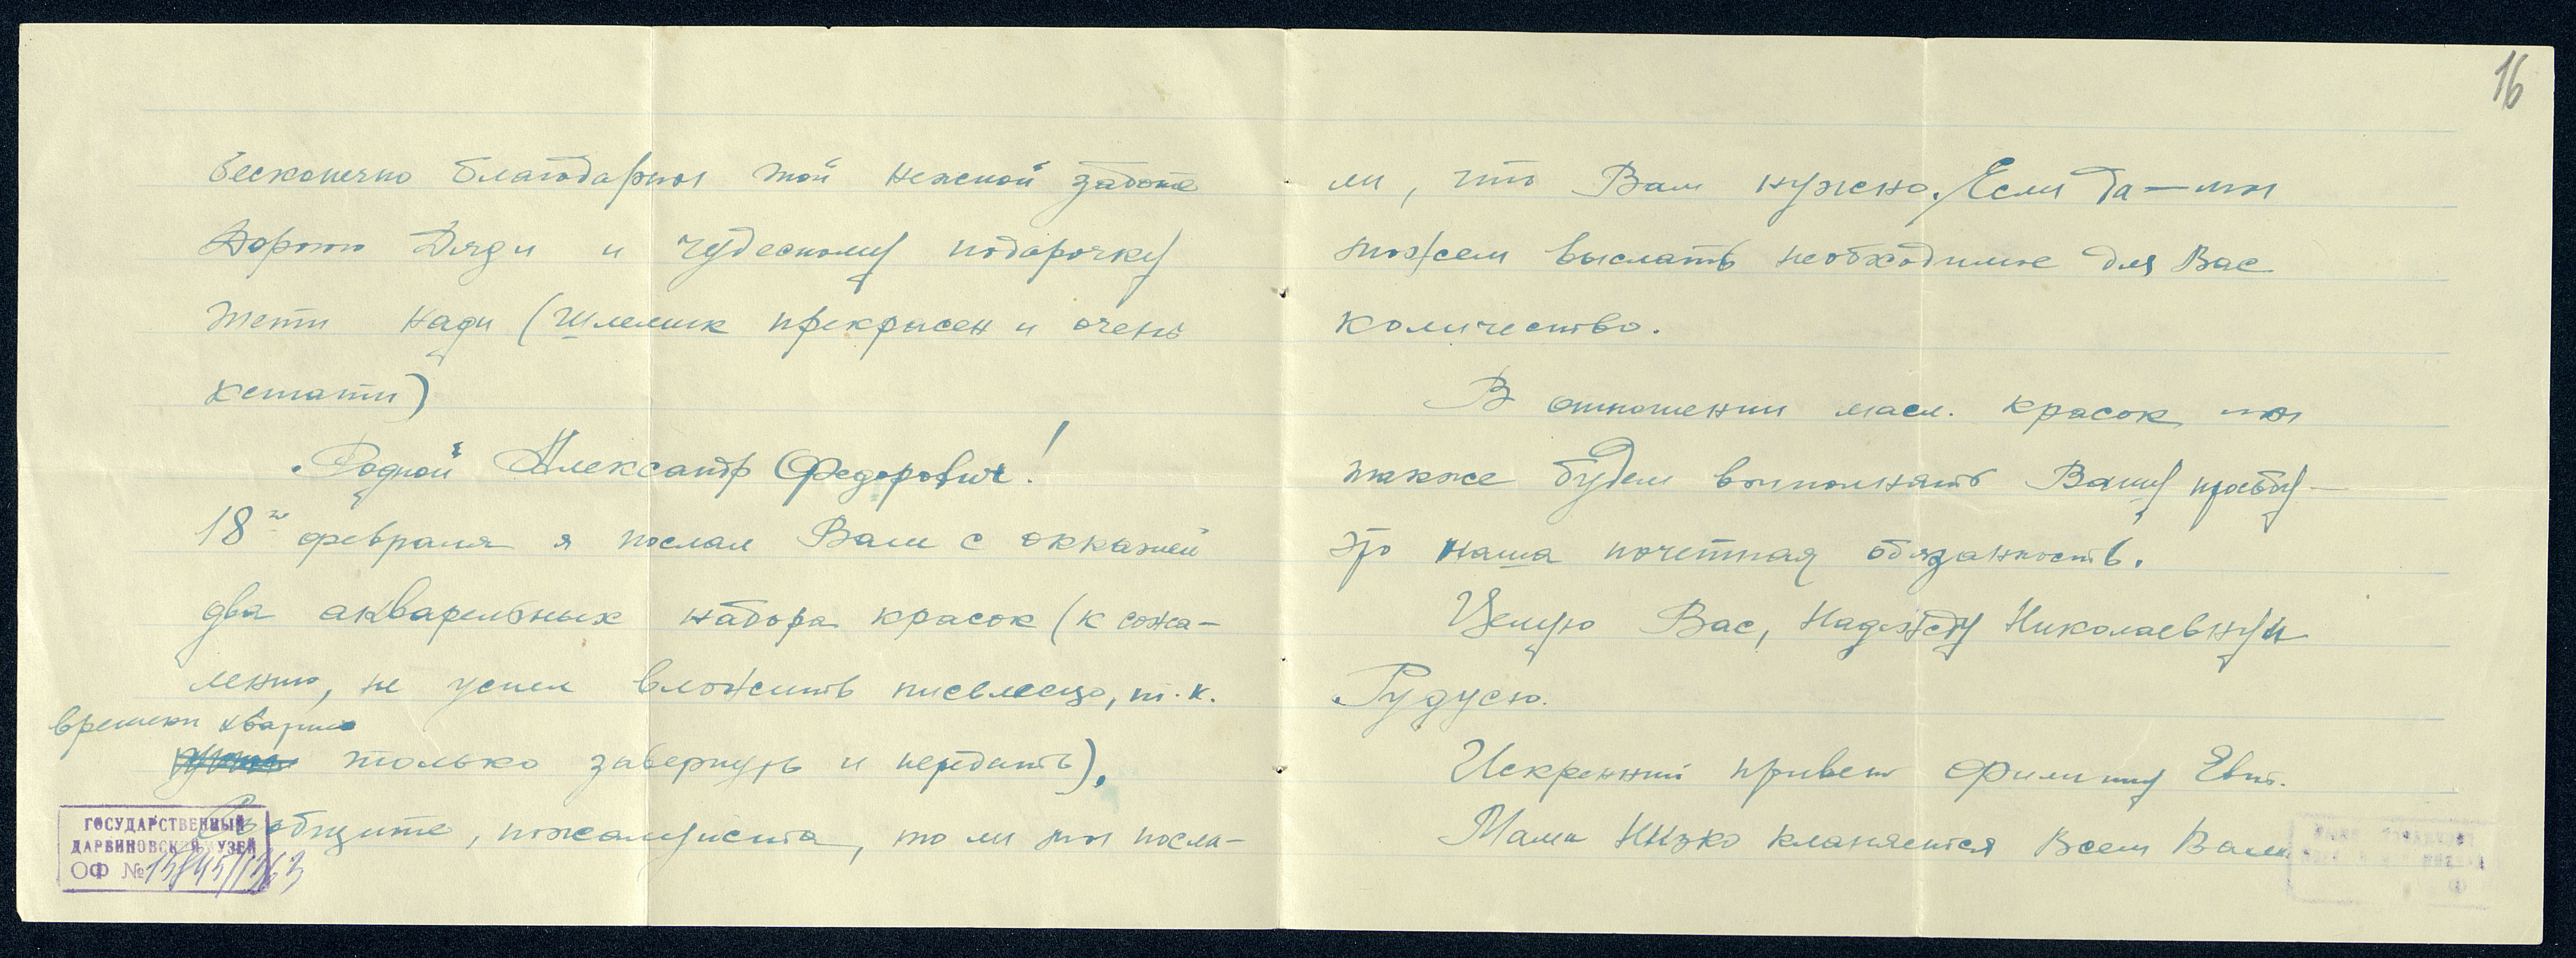 бесконечно благодарны той нежной заботе
дорого Дяди и чудесному подарочку
тети Нади (шлемик прекрасен и очень
кстати)
Родной Александр Федорович!
18го февраля я послал Вам с оказией
два акварельных набора красок (к сожа-
лению, не успел вложить письмецо, т.к.
времени хватило
только завернуть и передать).
Сообщите, пожалуйста, то ли мы посла-
ГОСУДАРСТВЕННЫЙ
ДАРВИНОВСКИЙ МУЗЕЙ
ОФ №
16
ли, что Вам нужно. Если да — мы
можем выслать необходимое для Вас
количество.
В отношении масл. красок мы
также будем выполнять Вашу просьбу —
это наша почетная обязанность.
Целую Вас, Надежду Николаевну и
Рудусю.
Искренний привет Филиппу Евт.
Мама низко кланяется Всем Вам